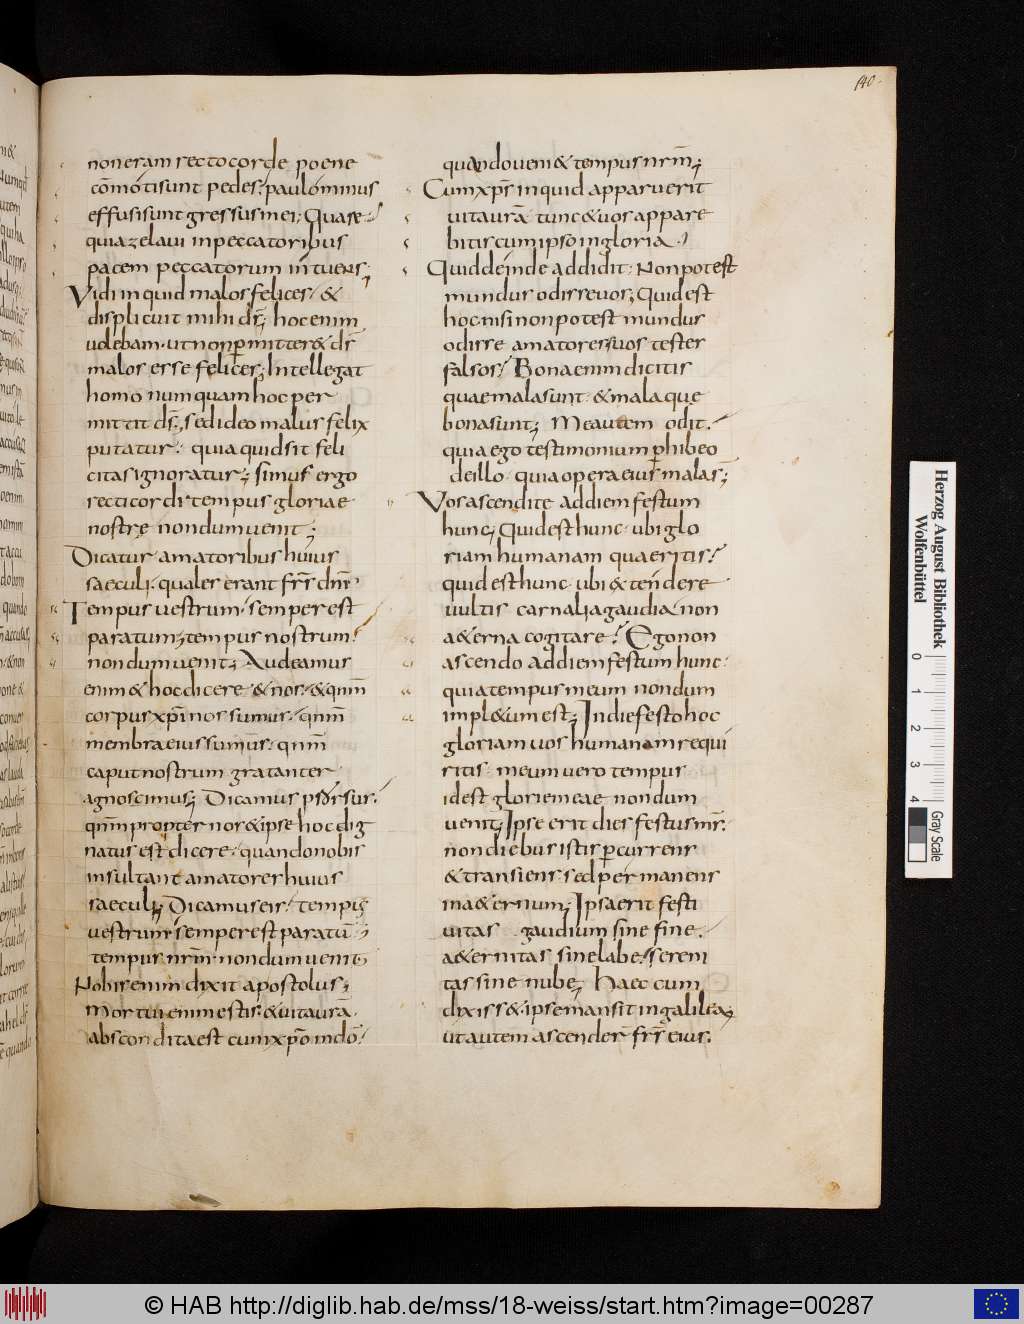 140.
non eram recto corde poene
cōmoti sunt pedes; paulominus
effusi sunt gressus mei; Quare;
quia zelavi in peccatoribus
pacem peccatorum intuens;
Vidi inquid malos felices, &
displicuit mihi dr̄; hoc enim
volebam. ut non ꝑmitter& dr̄
malos esse felices; Intellegat
homo numquam hoc per
mittit ds̄, sed ideo malus felix
putatur: quia quid sit feli
citas ignoratur; simus ergo
recti cordi: tempus gloriae
nostrę nondum venit;
Dicatur amatoribus huius
saeculi. quales erant frr̄ dnī
Tempus vestrum semper est
paratum; tempus nostrum
nondum venit; Audeamus
enim & hoc dicere. & nos. & qnm̄
corpus xp̄i nos sumus. qnm̄
membra eius sumus. qnm̄
caput nostrum gratanter
agnoscimus; Dicamus prorsus.
qnm̄ propter nos & ipse hoc dig
natus est dicere. quando nobis
insultant amatores huius
saeculi; Dicamus eis. tempus
vestrum semper est paratū;
tempus nrm̄ nondum venit
Nobis enim dixit apostolus;
Mortui enim estis. & vita vr̄a
abscondita est cum xp̄o in dō.
quando veni& tempus nrm̄;
Cum xp̄s inquid apparuerit
vita vr̄a tunc & vos appare
bitis cum ipso in gloria.
Quid deinde addidit. Non potest
mundus odisse vos; Quid est
hoc. nisi non potest mundus
odisse amatores suos testes
falsos; Bona enim dicitis
quae mala sunt. & mala que
bona sunt; Me autem odit.
quia ego testimonium ꝑhibeo
de illo. quia opera eius mala s̄;
Vos ascendite ad diem festum
hunc; Quid est hunc. ubi glo
riam humanam quaeritis;
quid est hunc. ubi extendere
vultis carnalia gaudia non
a&erna cogitare; Ego non
ascendo ad diem festum hunc.
quia tempus meum nondum
impl&um est; In die festo hoc
gloriam vos humanam requi
ritis. meum vero tempus
id est gloriae meae nondum
venit; Ipse erit dies festus nr̄.
non diebus istis ꝑcurrens
& transiens. sed permanens
in a&ernum; Ipsa erit festi
vitas gaudium sine fine.
a&ernitas sine labe. sereni
tas sine nube; Haec cum
dixiss&. ipse mansit in galilaea;
ut autem ascender̄ frr̄ eius.
Herzog August Bibliothek
Wolfenbüttel
0 1 2 3 4
Gray Scale
© HAB http://diglib.hab.de/mss/18-weiss/start.htm?image=00287